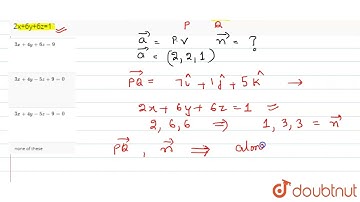 2x+6y+6z=1
3x + 4y + 6z = 9
3x + 4y − 5z + 9 = 0
3x + 4y − 5z − 9 = 0
none of these
P Q
a⃗ = P.V n⃗ = ?
a⃗ = (2, 2, 1)
PQ⃗ = 7î + 1ĵ + 5k̂ →
2x + 6y + 6z = 1
2, 6, 6 ⇒ 1, 3, 3 = n⃗
PQ⃗ , n⃗ ⇒ alon
doubtnut